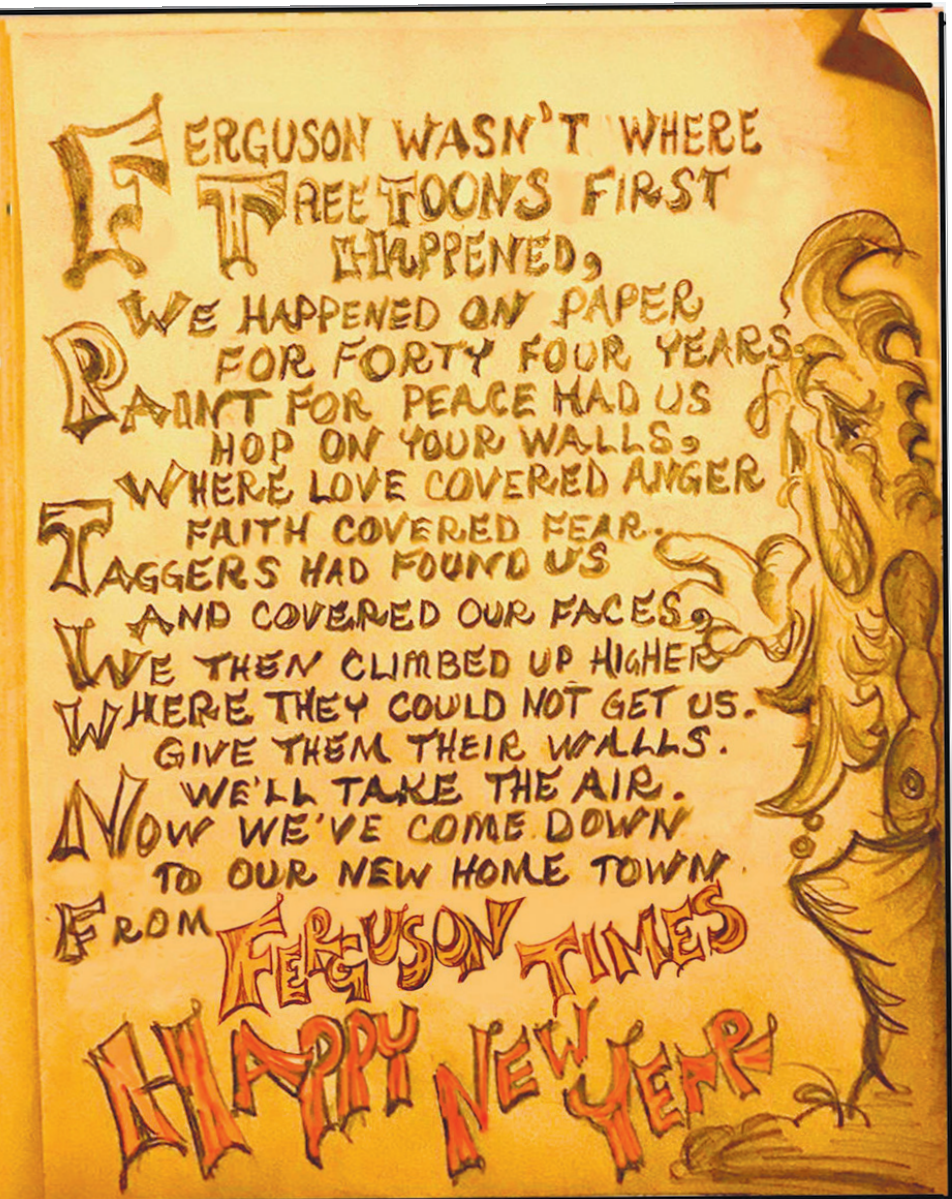 FERGUSON WASN'T WHERE
TREETOONS FIRST
HAPPENED,
WE HAPPENED ON PAPER
FOR FORTY FOUR YEARS.
PAINT FOR PEACE HAD US
HOP ON YOUR WALLS,
WHERE LOVE COVERED ANGER
FAITH COVERED FEAR.
TAGGERS HAD FOUND US
AND COVERED OUR FACES,
WE THEN CLIMBED UP HIGHER
WHERE THEY COULD NOT GET US.
GIVE THEM THEIR WALLS.
WE'LL TAKE THE AIR.
NOW WE'VE COME DOWN
TO OUR NEW HOME TOWN.
FROM FERGUSON TIMES
HAPPY NEW YEAR